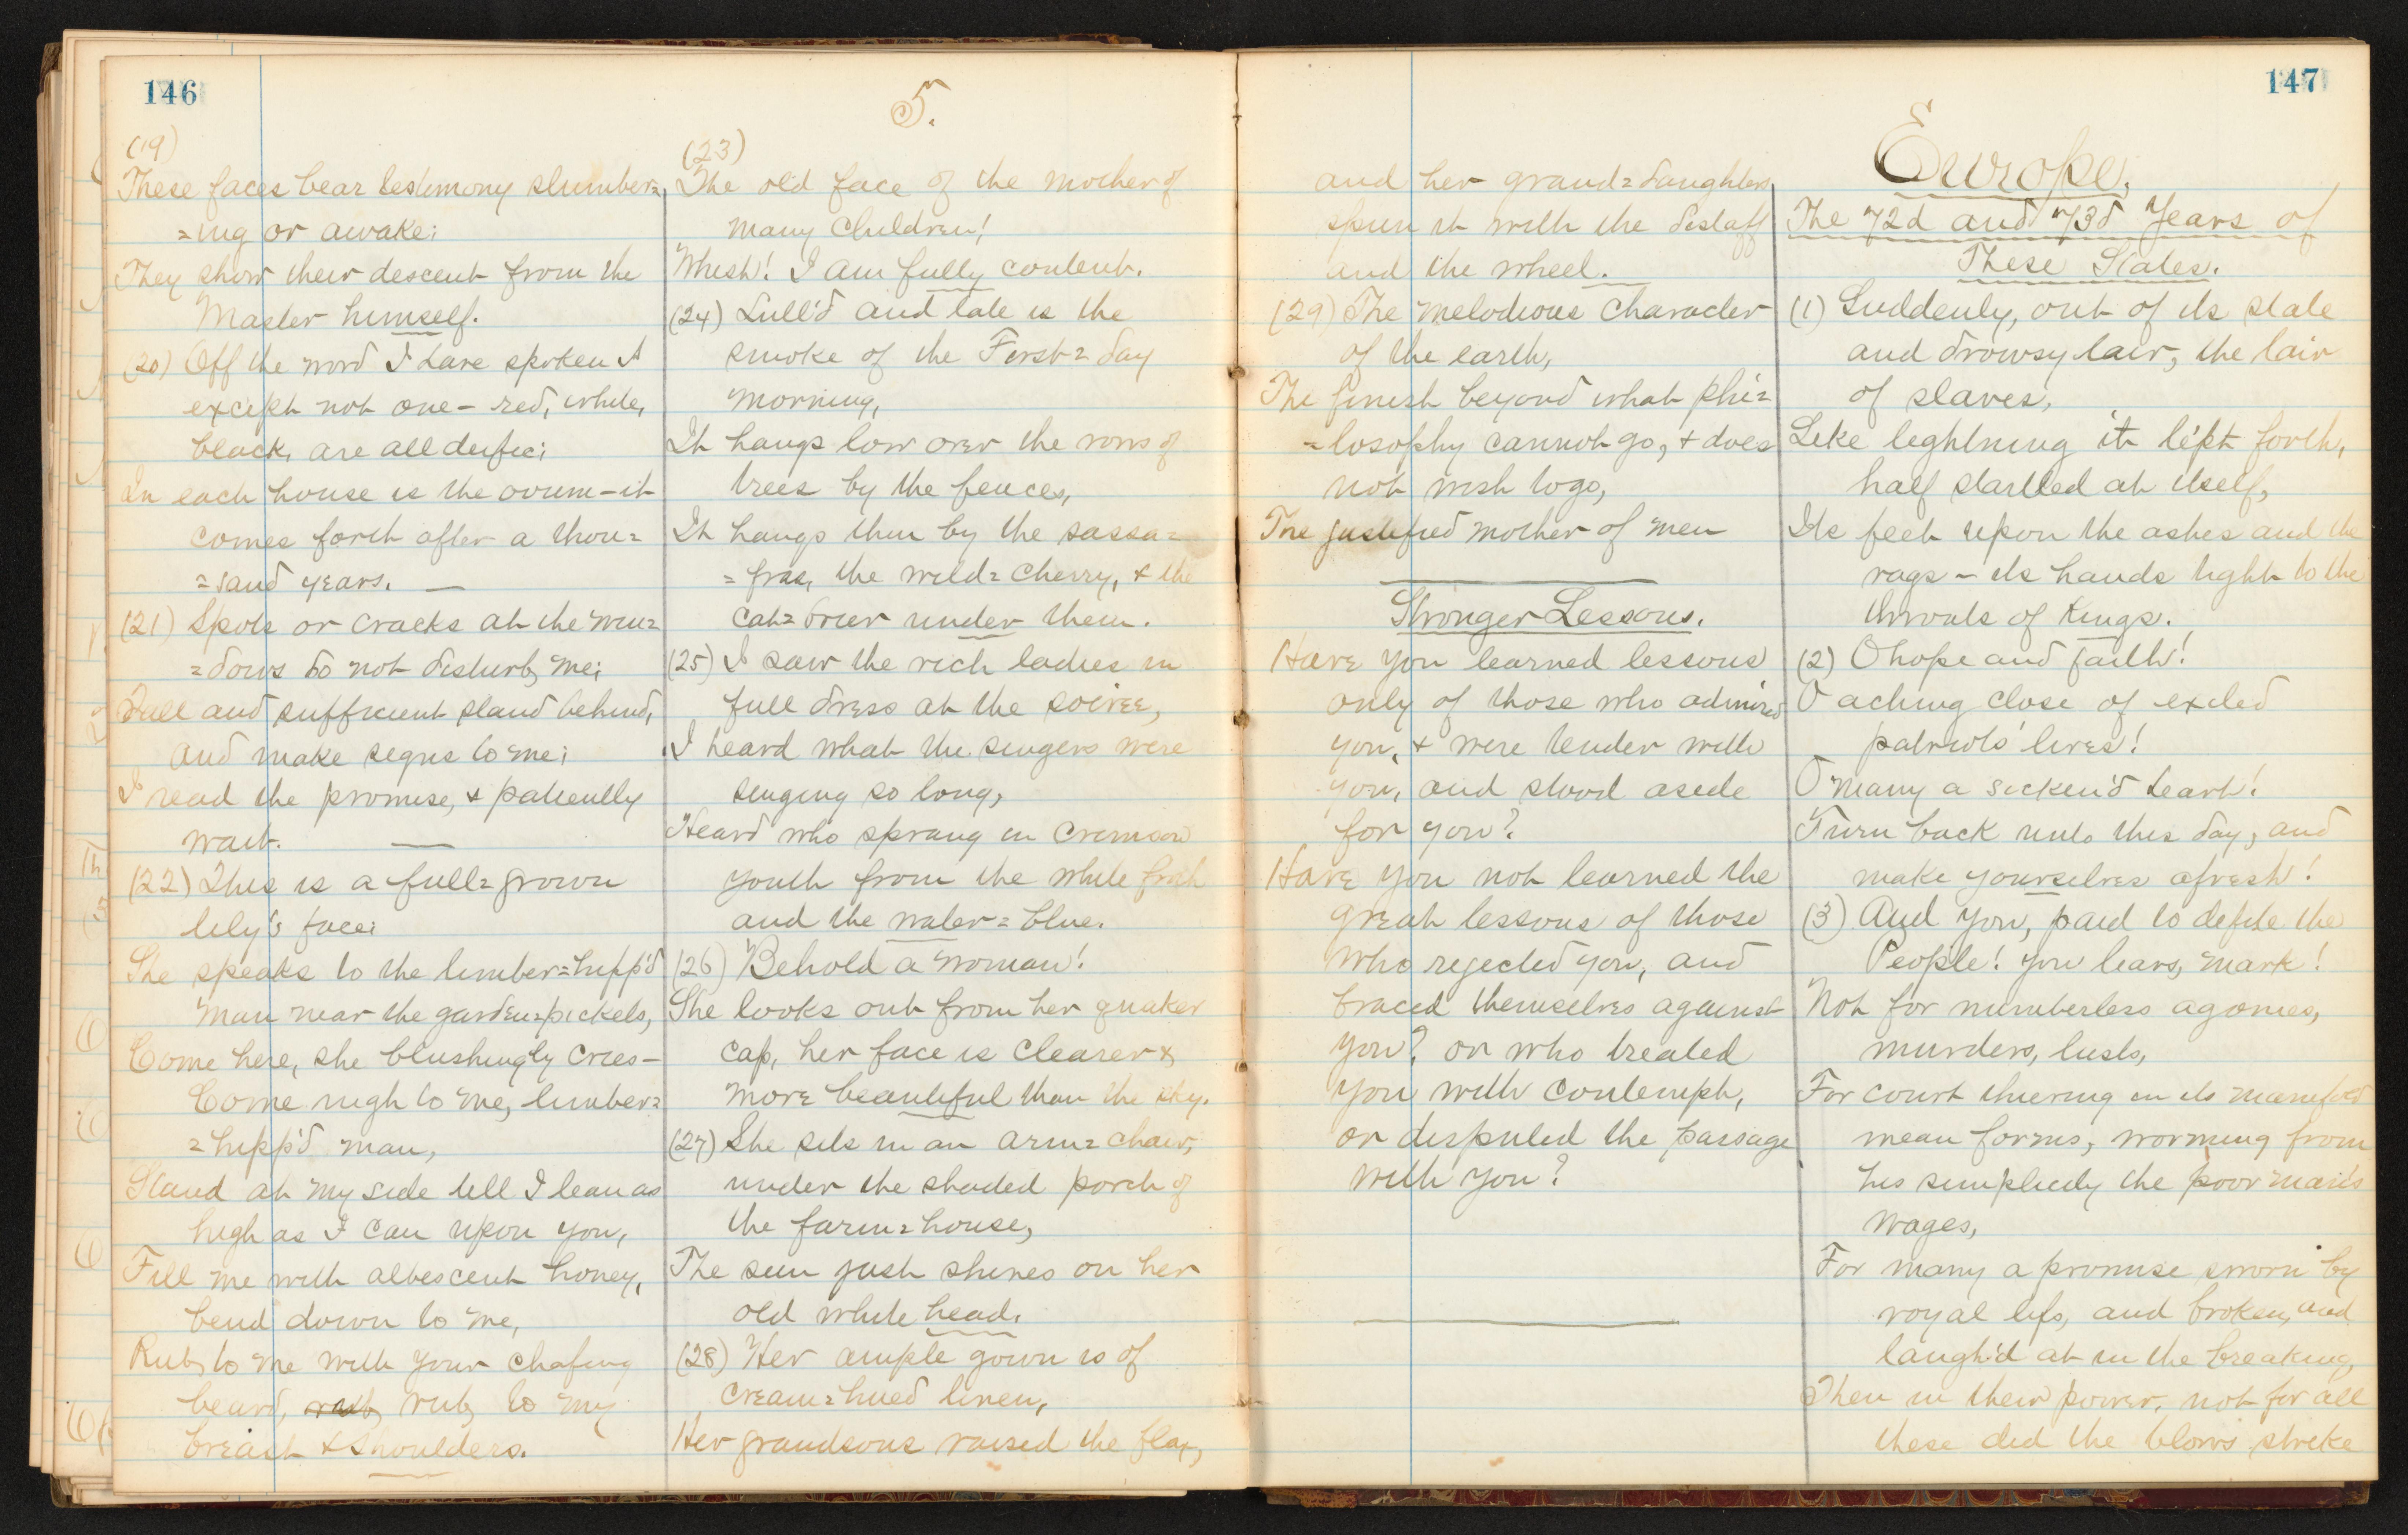 146
5.
(19)
These faces bear testimony slumber=
=ing or awake;
They show their descent from the
Master himself.
(20) Off the word I have spoken I
except not one – red, white,
black, are all deific;
In each house is the ovum – it
comes forth after a thou=
=sand years. —
(21) Spots or cracks at the win=
=dows do not disturb me;
Tall and sufficient stand behind,
and make signs to me;
I read the promise, & patiently
wait. —
(22) This is a full=grown
lily's face;
She speaks to the limber=hipp'd
man near the garden=pickets,
Come here, she blushingly cries –
Come nigh to me, limber=
=hipp'd man,
Stand at my side till I lean as
high as I can upon you,
Fill me with albescent honey,
bend down to me,
Rub to me with your chafing
beard, rub to my
breast & shoulders.
(23)
The old face of the mother of
many children!
Whist! I am fully content.
(24) Lull'd and late is the
smoke of the First=day
morning,
It hangs low over the rows of
trees by the fences,
It hangs thin by the sassa=
=fras, the wild=cherry, & the
cat=brier under them.
(25) I saw the rich ladies in
full dress at the soiree,
I heard what the singers were
singing so long,
Heard who sprang in crimson
youth from the white froth
and the water=blue.
(26) Behold a woman!
She looks out from her quaker
cap, her face is clearer &
more beautiful than the sky.
(27) She sits in an arm=chair,
under the shaded porch of
the farm=house,
The sun just shines on her
old white head.
(28) Her ample gown is of
cream=hued linen,
Her grandsons raised the flax,
147
and her grand=daughters
spun it with the distaff
and the wheel.
(29) The melodious character
of the earth,
The finish beyond what phi=
=losophy cannot go, & does
not wish to go,
The justified mother of men
Stronger Lessons.
Have you learned lessons
only of those who admired
you, & were tender with
you, and stood aside
for you?
Have you not learned the
great lessons of those
who rejected you, and
braced themselves against
you? or who treated
you with contempt,
or disputed the passage
with you?
Europe,
The 72d and 73d Years of
These States.
(1) Suddenly, out of its stale
and drowsy lair, the lair
of slaves,
Like lightning it le'pt forth,
half startled at itself,
Its feet upon the ashes and the
rags – its hands tight to the
throats of kings.
(2) O hope and faith!
O aching close of exiled
patriots' lives!
O many a sicken'd heart!
Turn back unto this day, and
make yourselves afresh!
(3) And you, paid to defile the
People! you liars, mark!
Not for numberless agonies,
murders, lusts,
For court thieving in its manifold
mean forms, worming from
his simplicity the poor man's
wages,
For many a promise sworn by
royal lips, and broken, and
laugh'd at in the breaking,
Then in their power, not for all
these did the blows strike